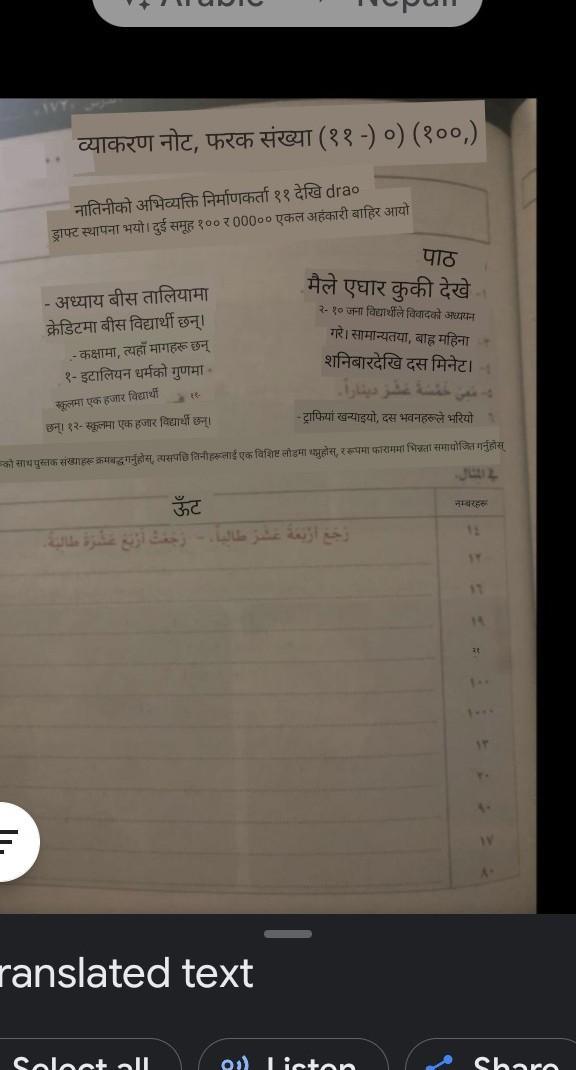 Arabic Nepali
व्याकरण नोट, फरक संख्या (११ -) ०) (१००,)
नातिनीको अभिव्यक्ति निर्माणकर्ता ११ देखि dra०
ड्राफ्ट स्थापना भयो। दुई समूह १०० र 000०० एकल अहंकारी बाहिर आयो
पाठ
मैले एघार कुकी देखे
२- १० जना विद्यार्थीले विवादको अध्ययन
गरे। सामान्यतया, बाह्र महिना
शनिबारदेखि दस मिनेट।
- ट्राफियां खन्याइयो, दस भवनहरूले भरियो
- अध्याय बीस तालियामा
क्रेडिटमा बीस विद्यार्थी छन्।
.- कक्षामा, त्यहाँ मागहरू छन्
१- इटालियन धर्मको गुणमा
स्कूलमा एक हजार विद्यार्थी
११-
छन्। १२- स्कूलमा एक हजार विद्यार्थी छन्।
को साथ पुस्तक संख्याहरू क्रमबद्ध गर्नुहोस्, त्यसपछि तिनीहरूलाई एक विशिष्ट लोडमा थप्नुहोस्, र रूपमा फाराममा भिन्नता समायोजित गर्नुहोस्
ऊँट
नम्बरहरू
رَجَعَ أَرْبَعَةَ عَشَرَ طالِباً. – رَجَعَتْ أَرْبَعَ عَشْرَةَ طالِبَةً.
١٤
١٢
١٦
١٩
२१
١٠٠
١٠٠٠
١٣
٢٠
٩٠
١٧
٨٠
ranslated text
Select all
Listen
Share